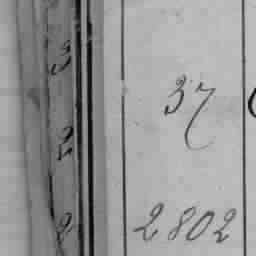 3
37
2
2802
2